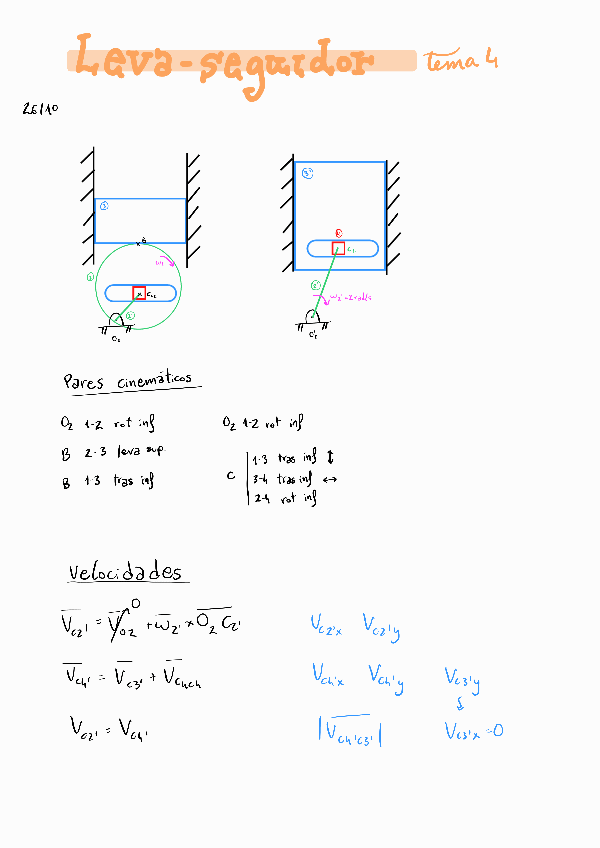 Leva-seguidor tema 4
26/10
3
B
ω₂
2
C₂
2
O₂
3'
4
C₂
2'
ω₂'=2 rad/s
O₂'
Pares cinemáticos
O₂ 1-2 rot inf
B 2-3 leva sup
B 1-3 tras inf
O₂ 1-2 rot inf
C
1-3 tras inf ↕
3-4 tras inf ↔
2-4 rot inf
Velocidades
V_C2' = V_O2 0 + ω_2' × O₂C₂' V_C2'x V_C2'y
V_C4' = V_C3' + V_C4C4 V_C4'x V_C4'y V_C3'y
V_C2' = V_C4' |V_C4'C3'| V_C3'x = 0